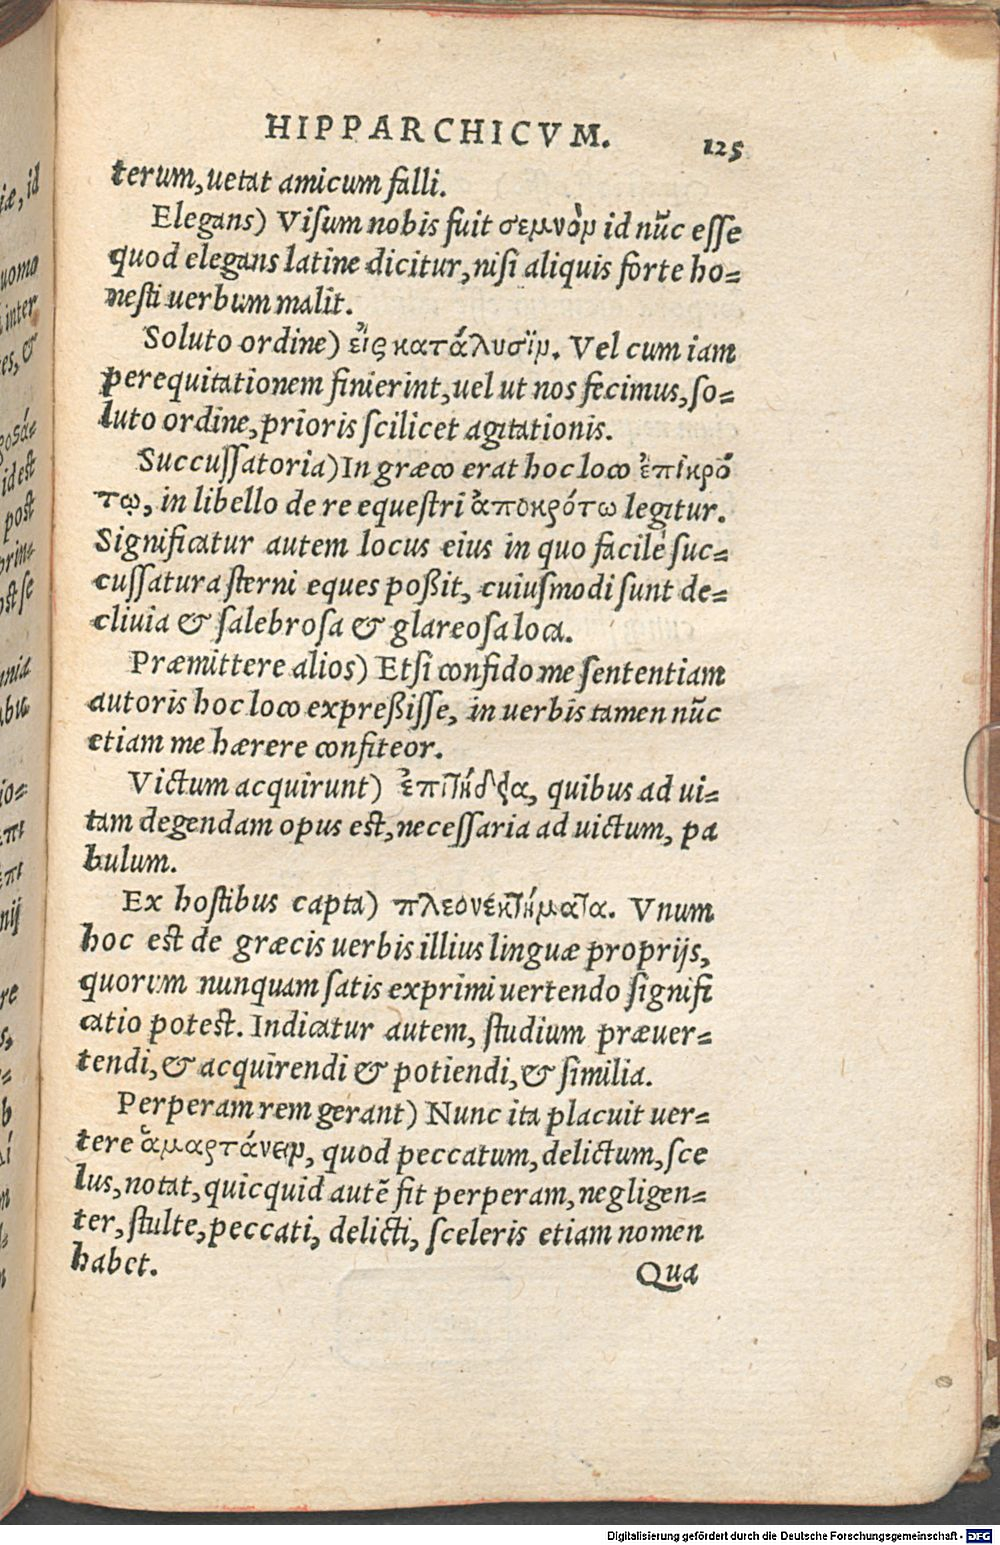 HIPPARCHICVM. 125
terum, uetat amicum falli.
Elegans) Viſum nobis fuit σεμνὸν id nūc eſſe
quod elegans latine dicitur, niſi aliquis forte ho=
neſti uerbum malit.
Soluto ordine) εἰς κατάλυσιν. Vel cum iam
perequitationem finierint, uel ut nos fecimus, ſo=
luto ordine, prioris ſcilicet agitationis.
Succuſſatoria) In græco erat hoc loco ἐπίκρό
τῳ, in libello de re equeſtri ἀποκρότω legitur.
Significatur autem locus eius in quo facile ſuc=
cuſſatura ſterni eques poßit, cuiuſmodi ſunt de=
cliuia & ſalebroſa & glareoſa loca.
Præmittere alios) Etſi confido me ſententiam
autoris hoc loco expreßiſſe, in uerbis tamen nūc
etiam me hærere confiteor.
Victum acquirunt) ἐπιτήδεια, quibus ad ui=
tam degendam opus eſt, neceſſaria ad uictum, pa
bulum.
Ex hoſtibus capta) πλεονέκτήματα. Vnum
hoc eſt de græcis uerbis illius linguæ proprijs,
quorum nunquam ſatis exprimi uertendo ſignifi
catio poteſt. Indicatur autem, ſtudium præuer=
tendi, & acquirendi & potiendi, & ſimilia.
Perperam rem gerant) Nunc ita placuit uer=
tere ἁμαρτάνειν, quod peccatum, delictum, ſce
lus, notat, quicquid autē fit perperam, negligen=
ter, ſtulte, peccati, delicti, ſceleris etiam nomen
habet.
Qua
Digitalisierung gefördert durch die Deutsche Forschungsgemeinschaft - DFG